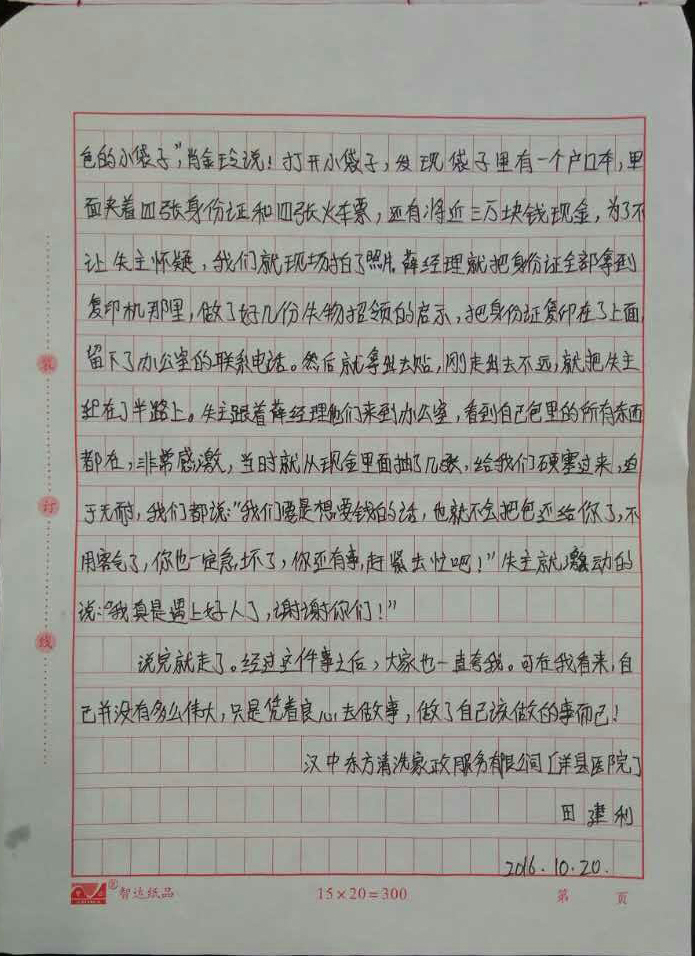 色的小袋子”，肖金玲说！打开小袋子，发现袋子里有一个户口本，里
面夹着四张身份证和四张火车票，还有将近三万块钱现金，为了不
让失主怀疑，我们就现场拍了照片。薛经理就把身份证全部拿到
复印机那里，做了好几份失物招领的启示，把身份证复印在了上面，
留下了办公室的联系电话。然后就拿出去贴，刚走出去不远，就把失主
赶在了半路上。失主跟着薛经理他们来到办公室，看到自己包里的所有东西
都在，非常感激，当时就从现金里面抽了几张，给我们硬塞过来，迫
于无耐，我们都说：“我们要是想要钱的话，也就不会把包还给你了，不
用客气了，你也一定急坏了，你还有事，赶紧去忙吧！”失主就激动的
说：“我真是遇上好人了，谢谢你们！”
说完就走了。经过这件事之后，大家也一直夸我。可在我看来，自
己并没有多么伟大，只是凭着良心去做事，做了自己该做的事而已！
汉中东方清洗家政服务有限公司［洋县医院］
田建利
2016.10.20.
装
订
线
智达纸品
15×20=300
第 页